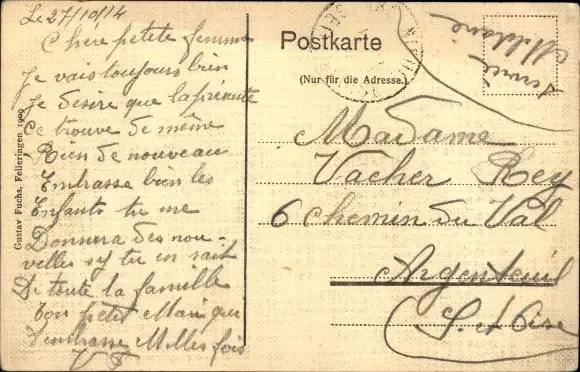 Le 27/10/14
Chere petite femme
Je vais toujours bien
Je desire que la présente
te trouve de même
Rien de nouveau
Embrasse bien les
Enfants tu me
Donnera des nou-
velles sy tu en sait
De toute la famille
Ton petit Mari que
t'embrasse Milles fois
Gustav Fuchs, Felleringen 1909
Postkarte
(Nur für die Adresse.)
Service
Militaire
Madame
Vacher Rey
6 Chemin du Val
Argenteuil
S. et Oise